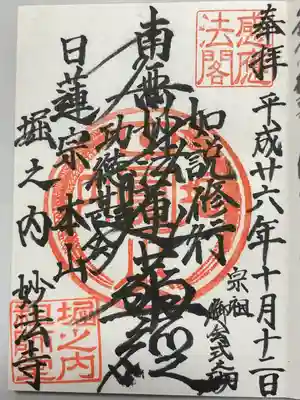 奉拝
平成廿六年十月十二日
宗祖
御会式之砌
感應
法閣
如説修行
南無妙法蓮華経
功徳甚多
日蓮宗本山
堀之内 妙法寺
堀之内